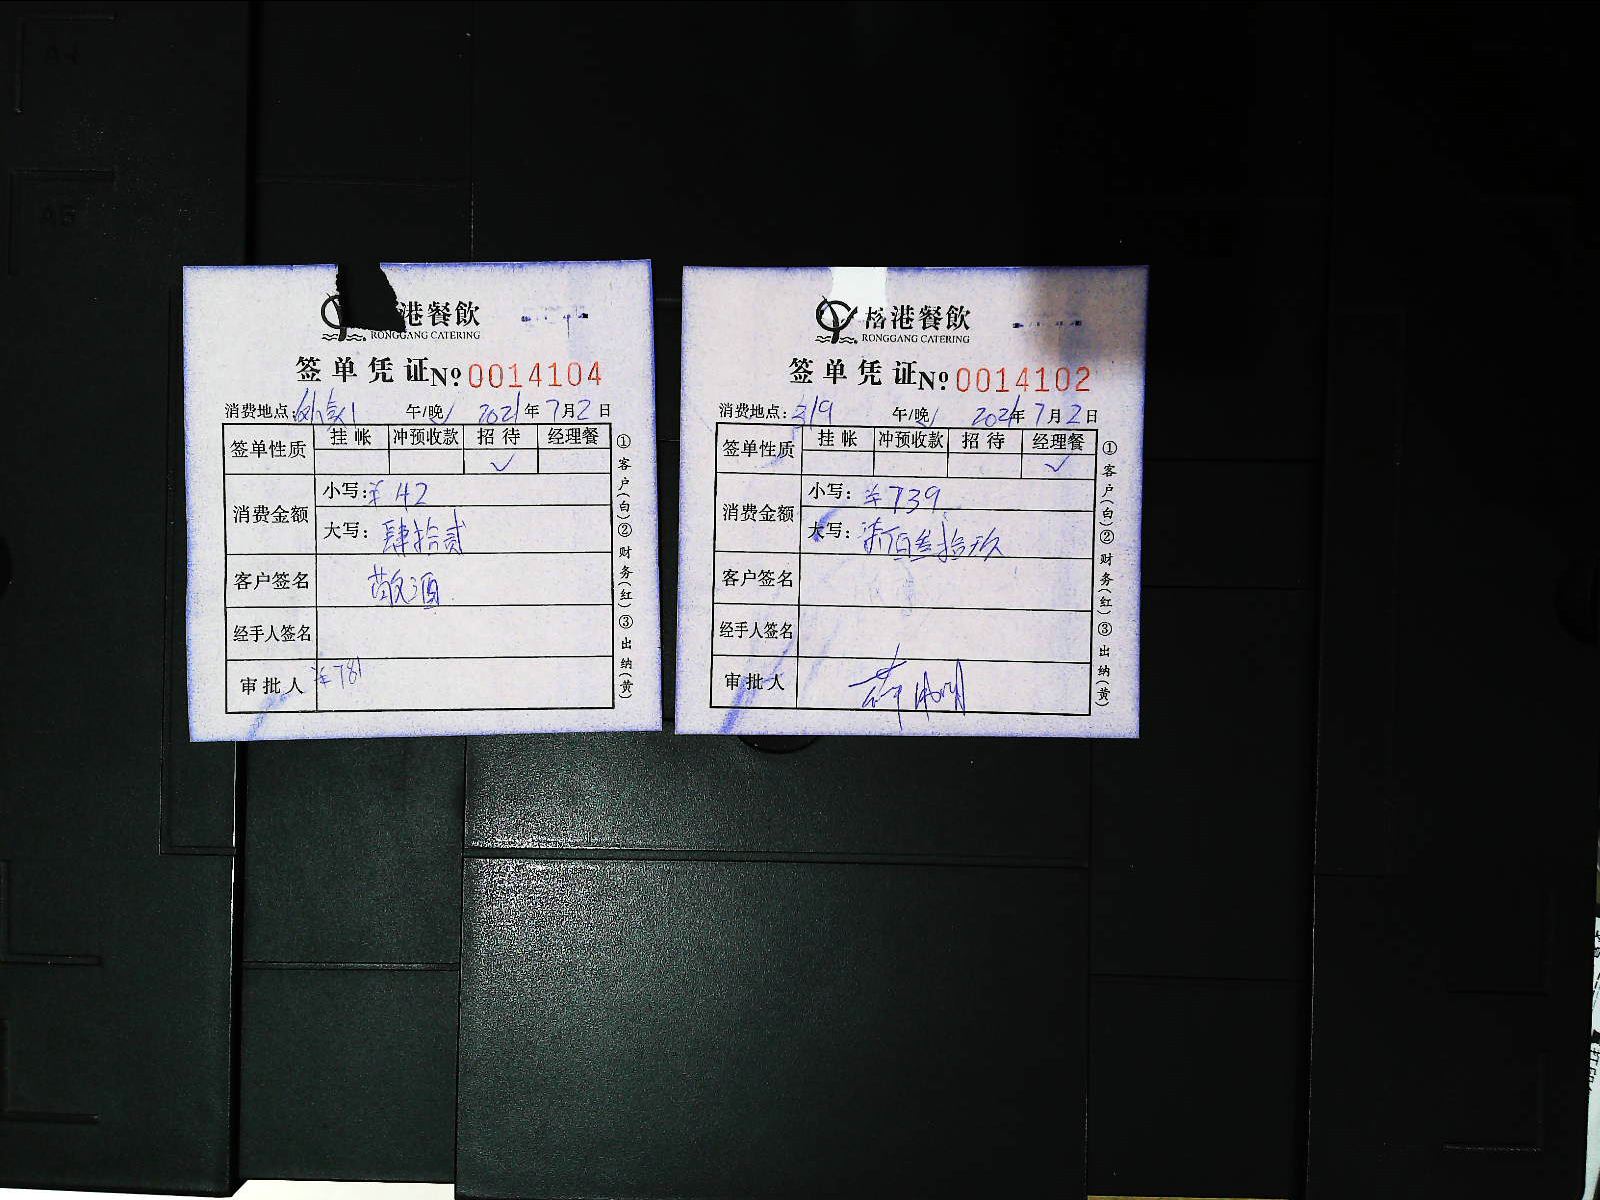 港餐飲
RONGGANG CATERING
签单凭证 № 0014104
消费地点: 午/晚 2021年7月2日
签单性质 挂帐 冲预收款 招待 经理餐
✓
消费金额 小写:¥42
大写: 肆拾贰
客户签名 敬酒
经手人签名
审批人 ¥781
①客户(白)②财务(红)③出纳(黄)
榕港餐飲
RONGGANG CATERING
签单凭证 № 0014102
消费地点: 午/晚 2021年7月2日
签单性质 挂帐 冲预收款 招待 经理餐
✓
消费金额 小写: ¥739
大写: 柒佰叁拾玖
客户签名
经手人签名
审批人
①客户(白)②财务(红)③出纳(黄)
A4
A5